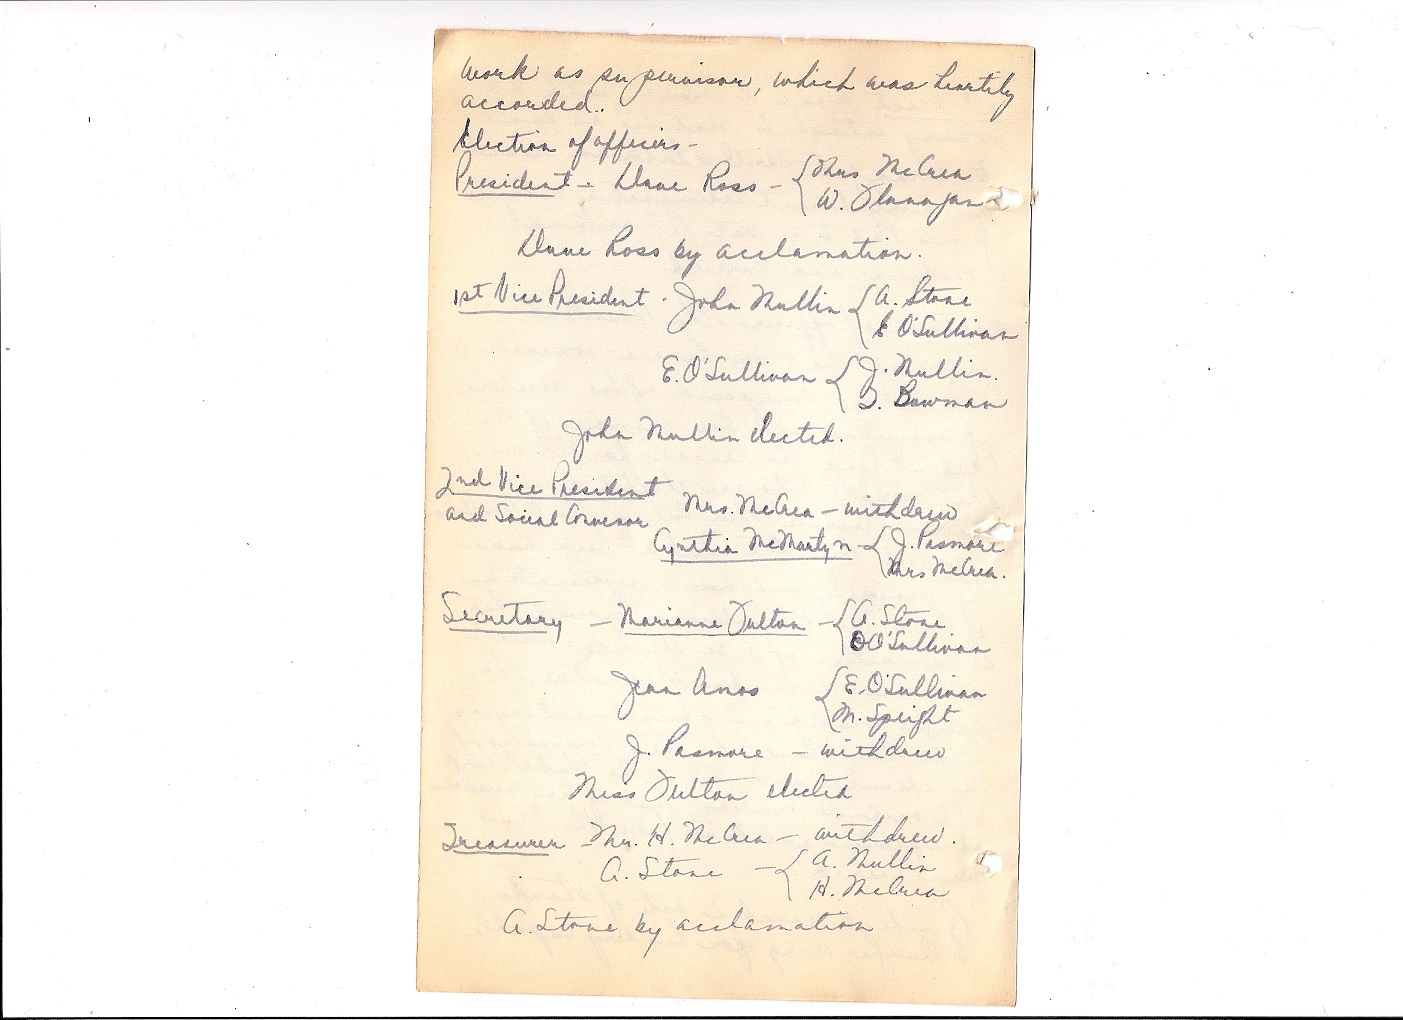 work as supervisor, which was heartily
accorded.
Election of officers -
President - Dave Ross - { Mrs McCrea
W. Flanagan
Dave Ross by acclamation.
1st Vice President - John Mullin { A. Stone
E O'Sullivan
E. O'Sullivan { J. Mullin.
T. Bowman
John Mullin elected.
2nd Vice President
and Social Convenor Mrs. McCrea - withdrew
Cynthia McMartyn - { J. Pasmore
Mrs McCrea.
Secretary - Marianne Fulton - { A. Stone
E O'Sullivan
Jean Amos { E. O'Sullivan
M. Speight
J. Pasmore - withdrew
Miss Fulton elected
Treasurer - Mr. H. McCrea - withdrew.
A. Stone - { A. Mullin
H. McCrea
A. Stone by acclamation